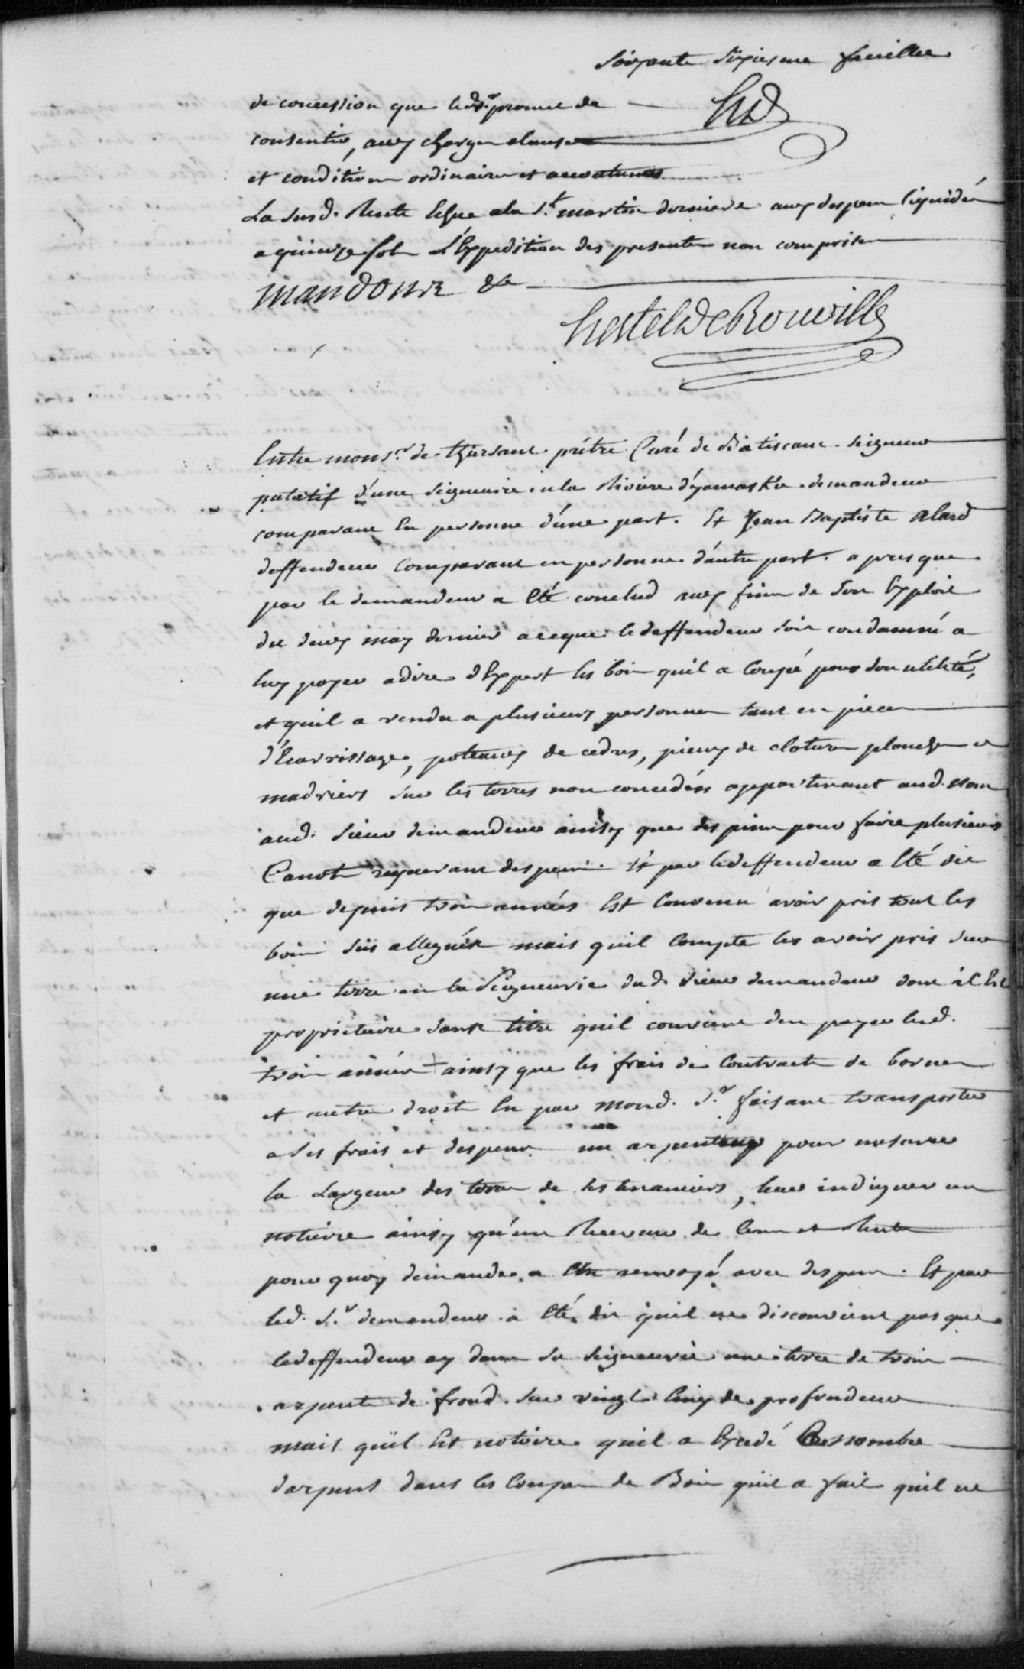 Soixante Sixiesme feuillee
de concession que led. Sr. promet de
consentir, aux charges clauses
et conditions ordinaires et accoutumés
La Susd. Rente Echue a la St. martin derniere aux despens liquidés
a quinze sols L'Expedition des presentes non comprise
mandons &a
HertelDeRouville
Entre monsr. de prêtre Curé de Batiscane Seigneur
putatif d'une Seigneurie en la Riviere d'yamaska demandeur
comparant En personne d'une part. Et Jean Baptiste Alard
deffendeur Comparant en personne d'autre part. apres que
par le demandeur a Eté conclud aux fins de Son Exploit
du deux may dernier a ceque le deffendeur Soit condamné a
luy payer a dire d'Expert les bois quil a Coupé pour Son utilité,
et quil a vendu a plusieurs personnes tant en pieces
d'Ecarrissage, poteaux de cedres, pieux de cloture planches et
madriers Sur les terres non concedées appartenant
aud. Sieur demandeur ainsy que des pins pour faire plusieurs
Canots requerant despens. Et par le deffendeur a Eté dit
que depuis trois années Est Convenu avoir pris tout les
bois Sus allegués mais quil Compte les avoir pris Sur
une terre en la Seigneurie dud. Sieur demandeur dont il Est
proprietaire Sans titre quil convient den payer lesd.
trois années ainsy que les frais de Contracts de bornes
et autre droit En par mond. Sr. faisant transporter
a Ses frais et despens un arpenteur pour mesurer
la Largeur des terres de Ses tenanciers, leur indiquer un
notaire ainsy qu'un Receveur de Cens et Rentes
pour quoy demande a Etre renvoyé avec despens. Et par
led. Sr. demandeur a Eté dit qu'il ne disconvient pas que
le deffendeur ay dans Sa Seigneurie une terre de trois
arpents de front Sur vingt Cinq de profondeur
mais quil Est notoire quil a Excedé Ces nombre
d'arpents dans les Coupes de Bois quil a fait quil ne